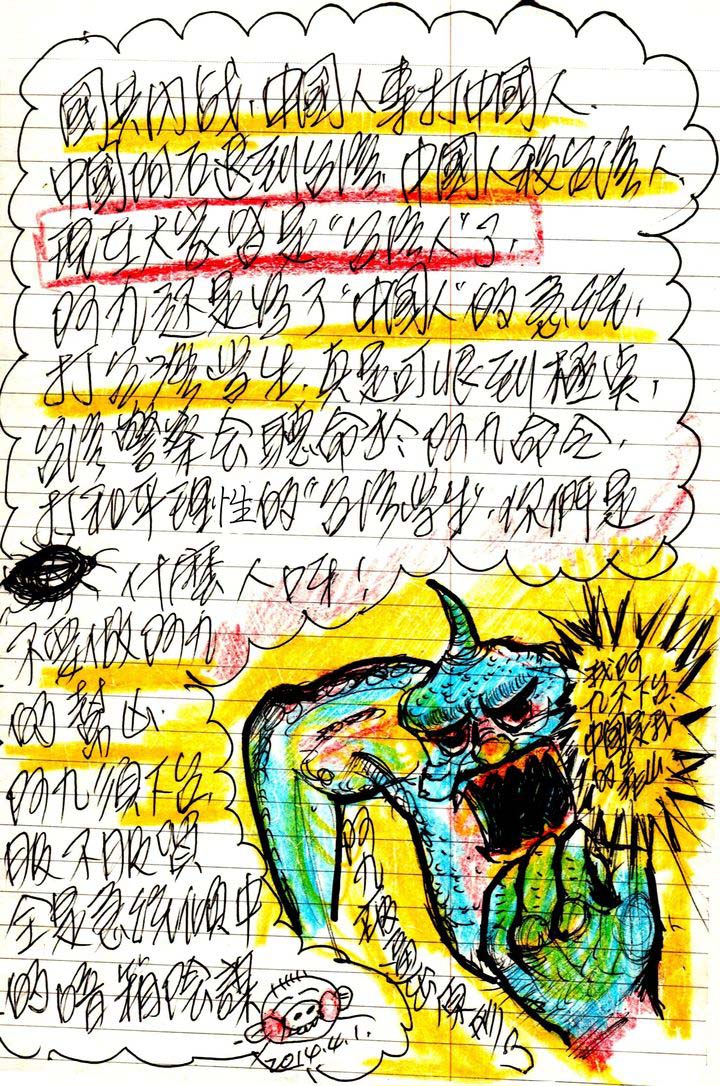 國共內战，中國人專打中國人．
中國阿石退到台湾，中國人殺台湾人．
現在大家皆是"台湾人"了．
阿九还是当了"中國人"的急統，
打台湾学生，真是可恨到極点，
台湾警察会聽命於阿九命令，
打和平理性的"台湾学生"，你們是
什麼人呀！
不要做阿九
的幫凶．
阿九須下台
服不服貿
全是急統傾中
的暗箱陰謀
我阿
九不下台，
中國是我
的靠山
阿九
2014.4.1.